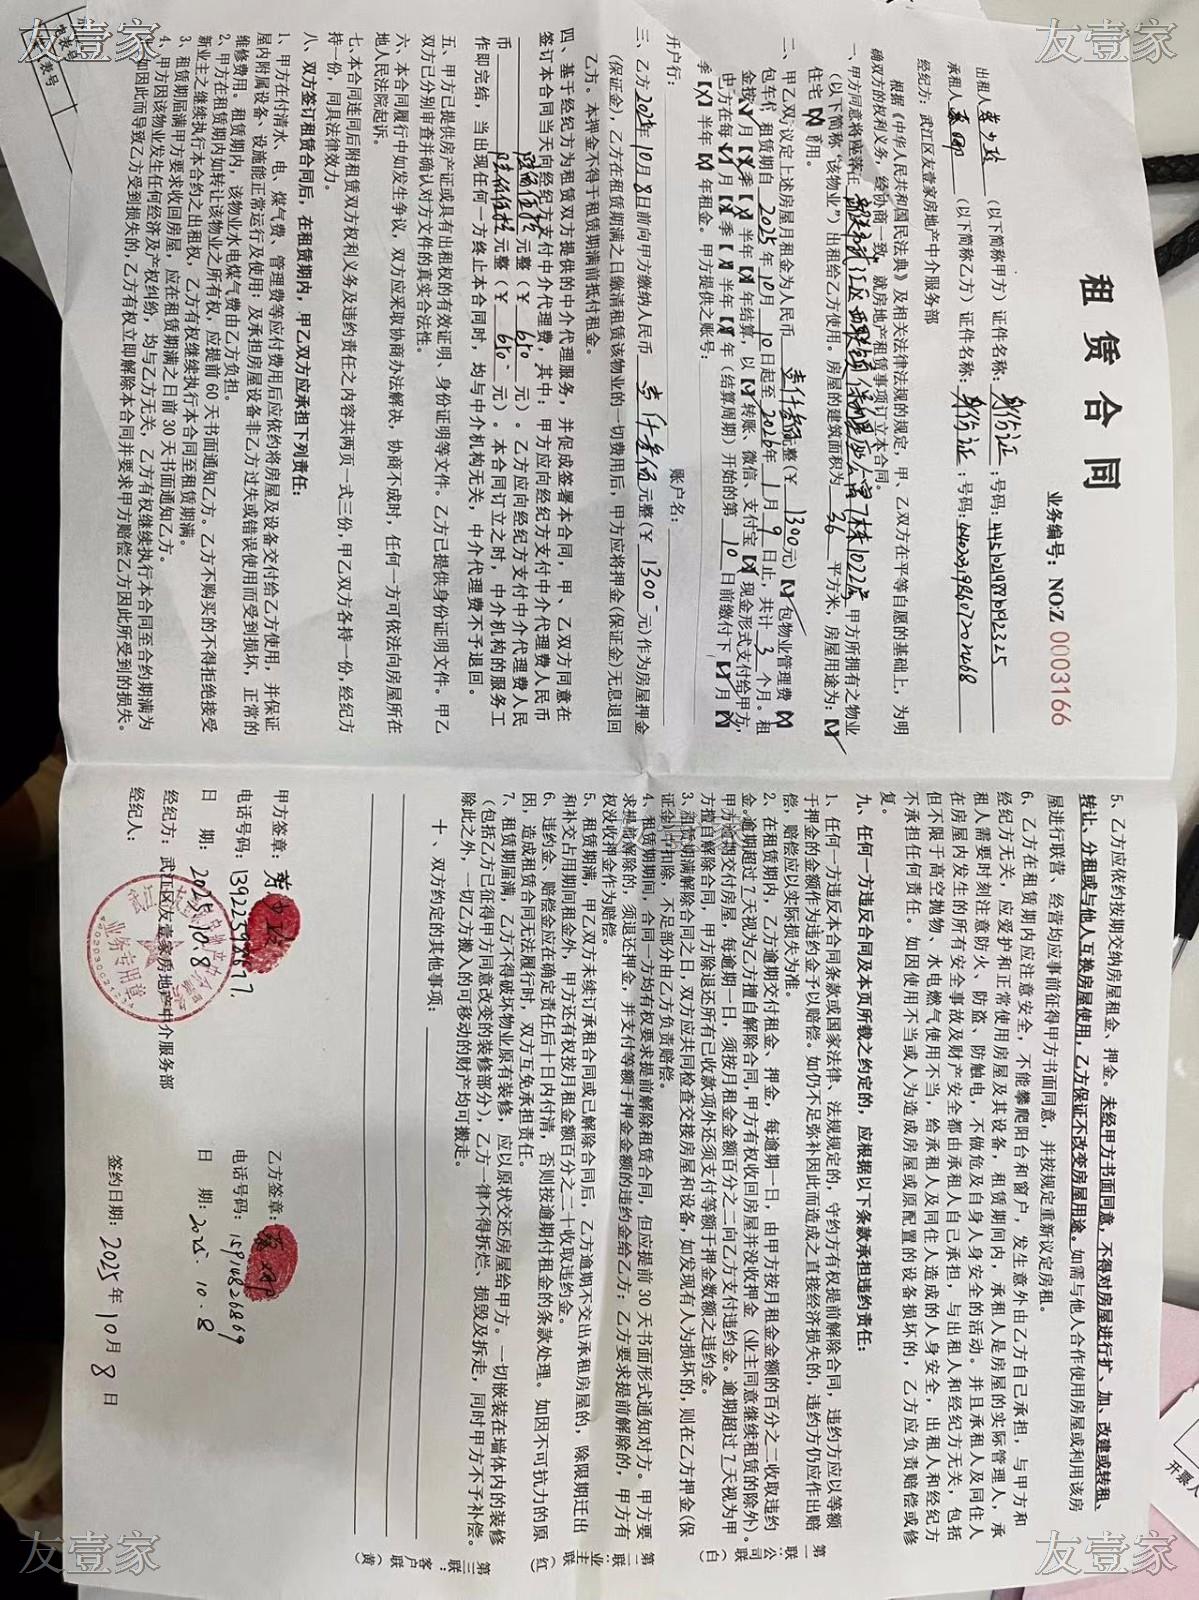 租 赁 合 同
业务编号：NO:Z 0003166
出租人 （以下简称甲方）证件名称：身份证
承租人 （以下简称乙方）证件名称：身份证
经纪方：武江区友壹家房地产中介服务部
根据《中华人民共和国民法典》及相关法律法规的规定，甲、乙双方在平等自愿的基础上，为明
确双方的权利义务，经协商一致，就房地产租赁事项订立本合同。
一、甲方同意将座落在 甲方所拥有之物业
（以下简称“该物业”）出租给乙方使用。房屋的建筑面积为 36 平方米，房屋用途为：
住宅 商用。
二、甲乙双方议定上述房屋月租金为人民币 壹仟叁佰元整（¥ 1300元） 包物业管理费
包车位，租赁期自 2025年10月10日起至2026年1月9日止，共计3个月。租
金按 月 季 半年 年结算，以 转账、微信、支付宝 现金形式支付给甲方，
由乙方在每 月 季 半年 年（结算周期）开始的第 10 日前缴付下 月
季 半年 年租金。甲方提供之账号：
开户行： 账户名：
三、乙方2025年10月8日前向甲方缴纳人民币 壹仟叁佰元整（¥ 1300 元）作为房屋押金
（保证金），乙方在租赁期满之日缴清租赁该物业的一切费用后，甲方应将押金（保证金）无息退回
乙方。本押金不得于租赁期满前抵付租金。
四、基于经纪方为租赁双方提供的中介代理服务，并促成签署本合同，甲、乙双方同意在
签订本合同当天向经纪方支付中介代理费，其中：甲方应向经纪方支付中介代理费人民币
陆佰伍拾元整（¥ 650 元）。乙方应向经纪方支付中介代理费人民
币 陆佰伍拾元整（¥ 650 元）。本合同订立之时，中介机构的服务工
作即完结，当出现任何一方终止本合同时，均与中介机构无关，中介代理费不予退回。
五、甲方已提供房产证或具有出租权的有效证明、身份证明等文件。乙方已提供身份证明文件。甲乙
双方已分别审查并确认对方文件的真实合法性。
六、本合同履行中如发生争议，双方应采取协商办法解决，协商不成时，任何一方可依法向房屋所在
地人民法院起诉。
七、本合同连同后附租赁双方权利义务及违约责任之内容共两页一式三份，甲乙双方各持一份，经纪方
持一份，同具法律效力。
八、双方签订租赁合同后，在租赁期内，甲乙双方应承担下列责任：
1、甲方在付清水、电、煤气费、管理费等应付费用后应依约将房屋及设备交付给乙方使用，并保证
屋内附属设备、设施能正常运行及使用；及承担房屋设备非乙方过失或错误使用而受到损坏，正常的
维修费用。租赁期内，该物业水电煤气费由乙方负担。
2、甲方在租赁期内如转让该物业之所有权，应提前60天书面通知乙方。乙方不购买的不得拒绝接受
新业主之继续执行本合约之出租权，乙方有权继续执行本合同至租赁期满。
3、租赁期届满甲方要求收回房屋，应在租赁期满之日前30天书面通知乙方。
4、甲方因该物业发生任何经济及产权纠纷，均与乙方无关，乙方有权继续执行本合同至合约期满为
止，如因此而导致乙方受到损失的，乙方有权立即解除本合同并要求甲方赔偿乙方因此所受到的损失。
5、乙方应依约按期交纳房屋租金、押金。未经甲方书面同意，不得对房屋进行扩、加、改建或转租、
转让、分租或与他人互换房屋使用，乙方保证不改变房屋用途。如需与他人合作使用房屋或利用该房
屋进行联营、经营均应事前征得甲方书面同意，并按规定重新议定房租。
6、乙方在租赁期内应注意安全，不能攀爬阳台和窗户，发生意外由乙方自己承担，与甲方和
经纪方无关，应爱护和正常使用房屋及其设备，租赁期间内，承租人是房屋的实际管理人，承
租人需要时刻注意防火、防盗、防触电，不做危及自身人身安全的活动。并且承租人及同住人
在房屋内发生的所有安全事故及财产安全都由承租人自己承担，与出租人和经纪方无关，包括
但不限于高空抛物、水电燃气使用不当，给承租人及同住人造成的人身安全，出租人和经纪方
不承担任何责任。如因使用不当或人为造成房屋或原配置的设备损坏的，乙方应负责赔偿或修
复。
九、任何一方违反合同及本页所载之约定的，应根据以下条款承担违约责任：
1、任何一方违反本合同条款或国家法律、法规规定的，守约方有权提前解除合同，违约方应以等额
于押金的金额作为违约金予以赔偿。如仍不足弥补因此而造成之直接经济损失的，违约方仍应作出赔
偿，赔偿应以实际损失为准。
2、在租赁期内，乙方逾期交付租金、押金，每逾期一日，由甲方按月租金金额的百分之二收取违约
金。逾期超过7天视为乙方擅自解除合同，甲方有权收回房屋并没收押金（业主同意继续租赁的除外）。
甲方逾期交付房屋，每逾期一日，须按月租金金额百分之二向乙方支付违约金。逾期超过7天视为甲
方擅自解除合同，甲方除退还所有已收款项外还须支付等额于押金数额之违约金。
3、租赁期满解除合同之日，双方应共同检查交接房屋和设备，如发现有人为损坏的，则在乙方押金（保
证金）中扣除，不足部分由乙方负责赔偿。
4、租赁期期间，合同一方均有权要求提前解除租赁合同，但应提前30天书面形式通知对方。甲方要
求提前解除的，须退还押金，并支付等额于押金金额的违约金给乙方；乙方要求提前解除的，甲方有
权没收押金作为赔偿。
5、租赁期满，甲乙双方未续订承租合同或已解除合同后，乙方逾期不交出承租房屋的，除限期迁出
和补交占用期间租金外，甲方还有权按月租金额百分之二十收取违约金。
6、违约金、赔偿金应在确定责任后十日内付清，否则按逾期付租金的条款处理。如因不可抗力的原
因，造成租赁合同无法履行时，双方互免承担责任。
7、租赁期届满，乙方不得破坏物业原有装修，应以原状交还房屋给甲方。一切嵌装在墙体内的装修
（包括乙方已征得甲方同意改变的装修部分），乙方一律不得拆烂、损毁及拆走，同时甲方不予补偿。
除此之外，一切乙方搬入的可移动的财产均可搬走。
十、双方约定的其他事项：
甲方签章： 乙方签章：
电话号码：13922539867 电话号码：15914826809
日 期：2025.10.8 日 期：2025.10.8
经纪方：武江区友壹家房地产中介服务部
经纪人： 签约日期：2025年10月8日
业务专用章
第一联：公司联（白）
第二联：业主联（红）
第三联：客户联（黄）
开票人
友壹家
友壹家
友壹家
友壹家
友壹家